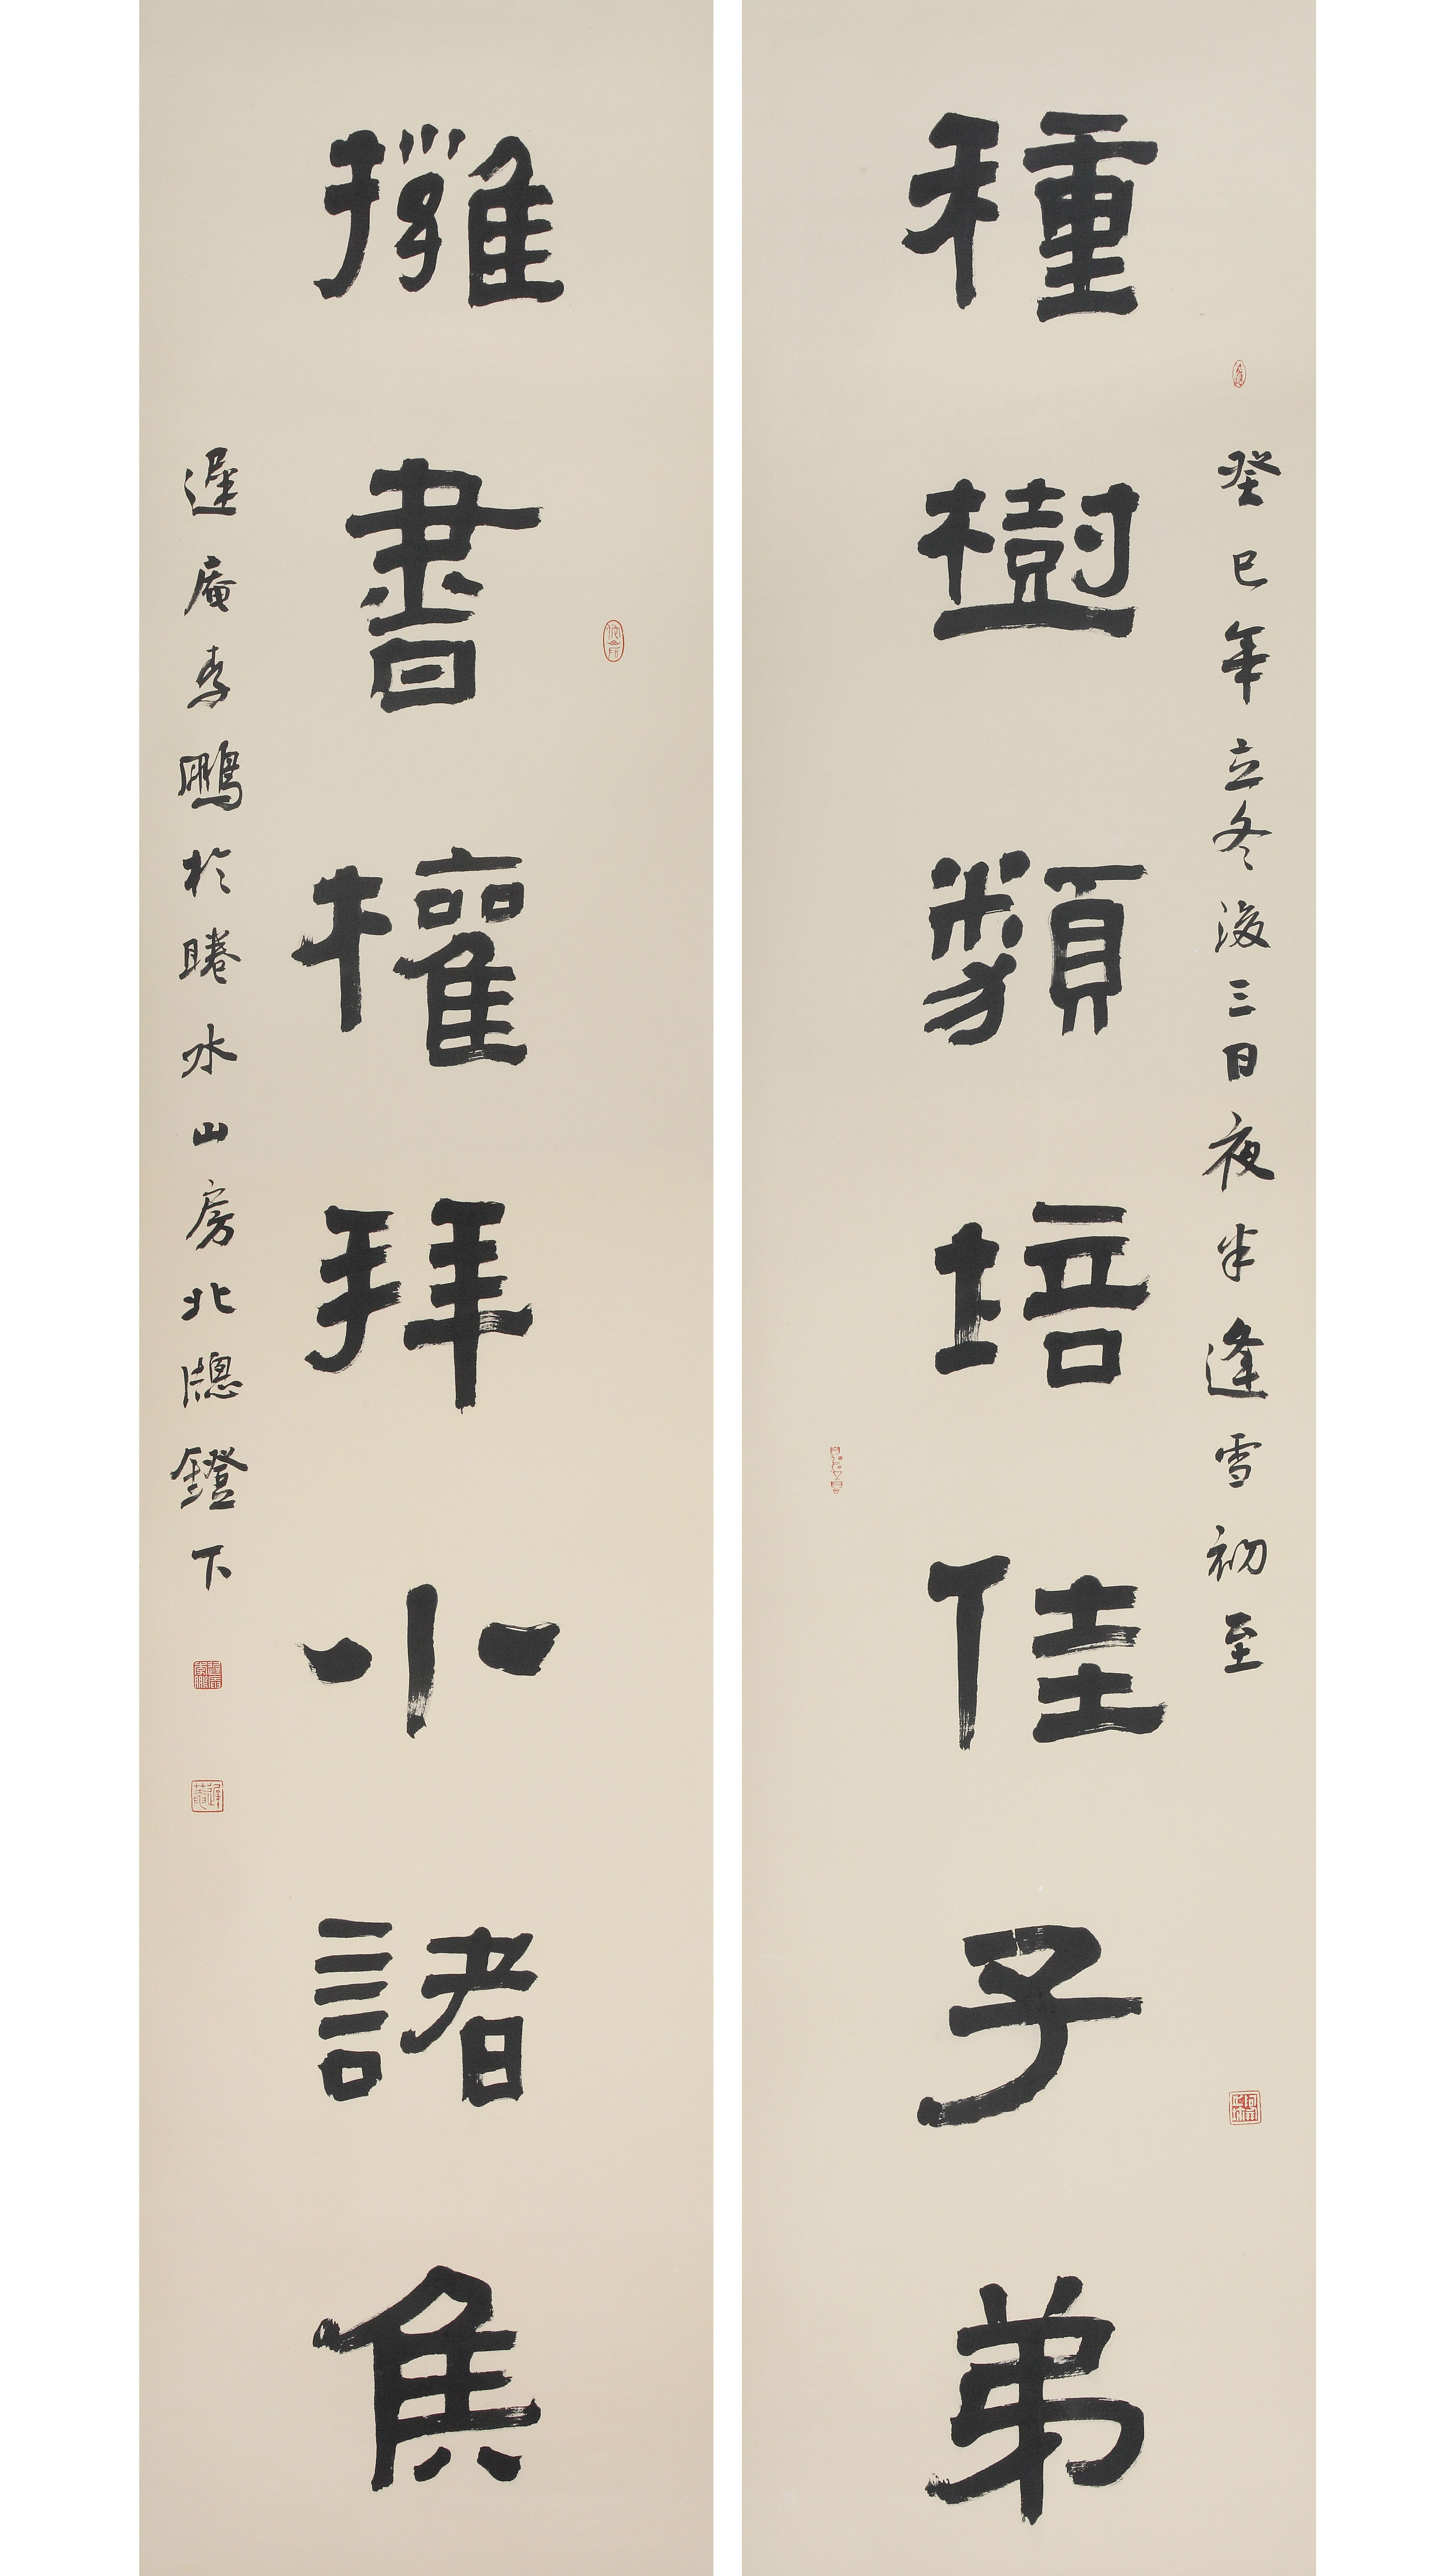 癸巳年立冬後三日夜半逢雪初至
種樹類培佳子弟
擁書權拜小諸侯
遲庵李鵬於睠水山房北牕鐙下